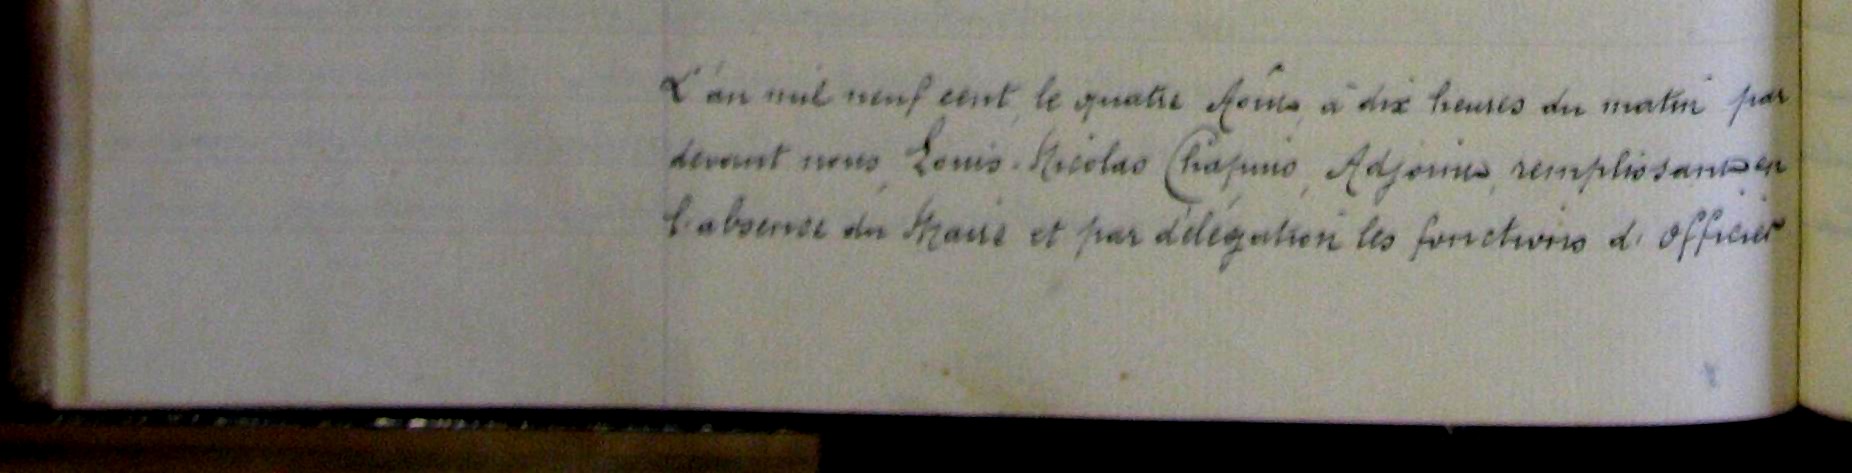 L'an mil neuf cent, le quatre Août, à dix heures du matin par
devant nous, Louis-Nicolas Chapuis, Adjoint, remplissant en
l'absence du Maire et par délégation les fonctions d'officier